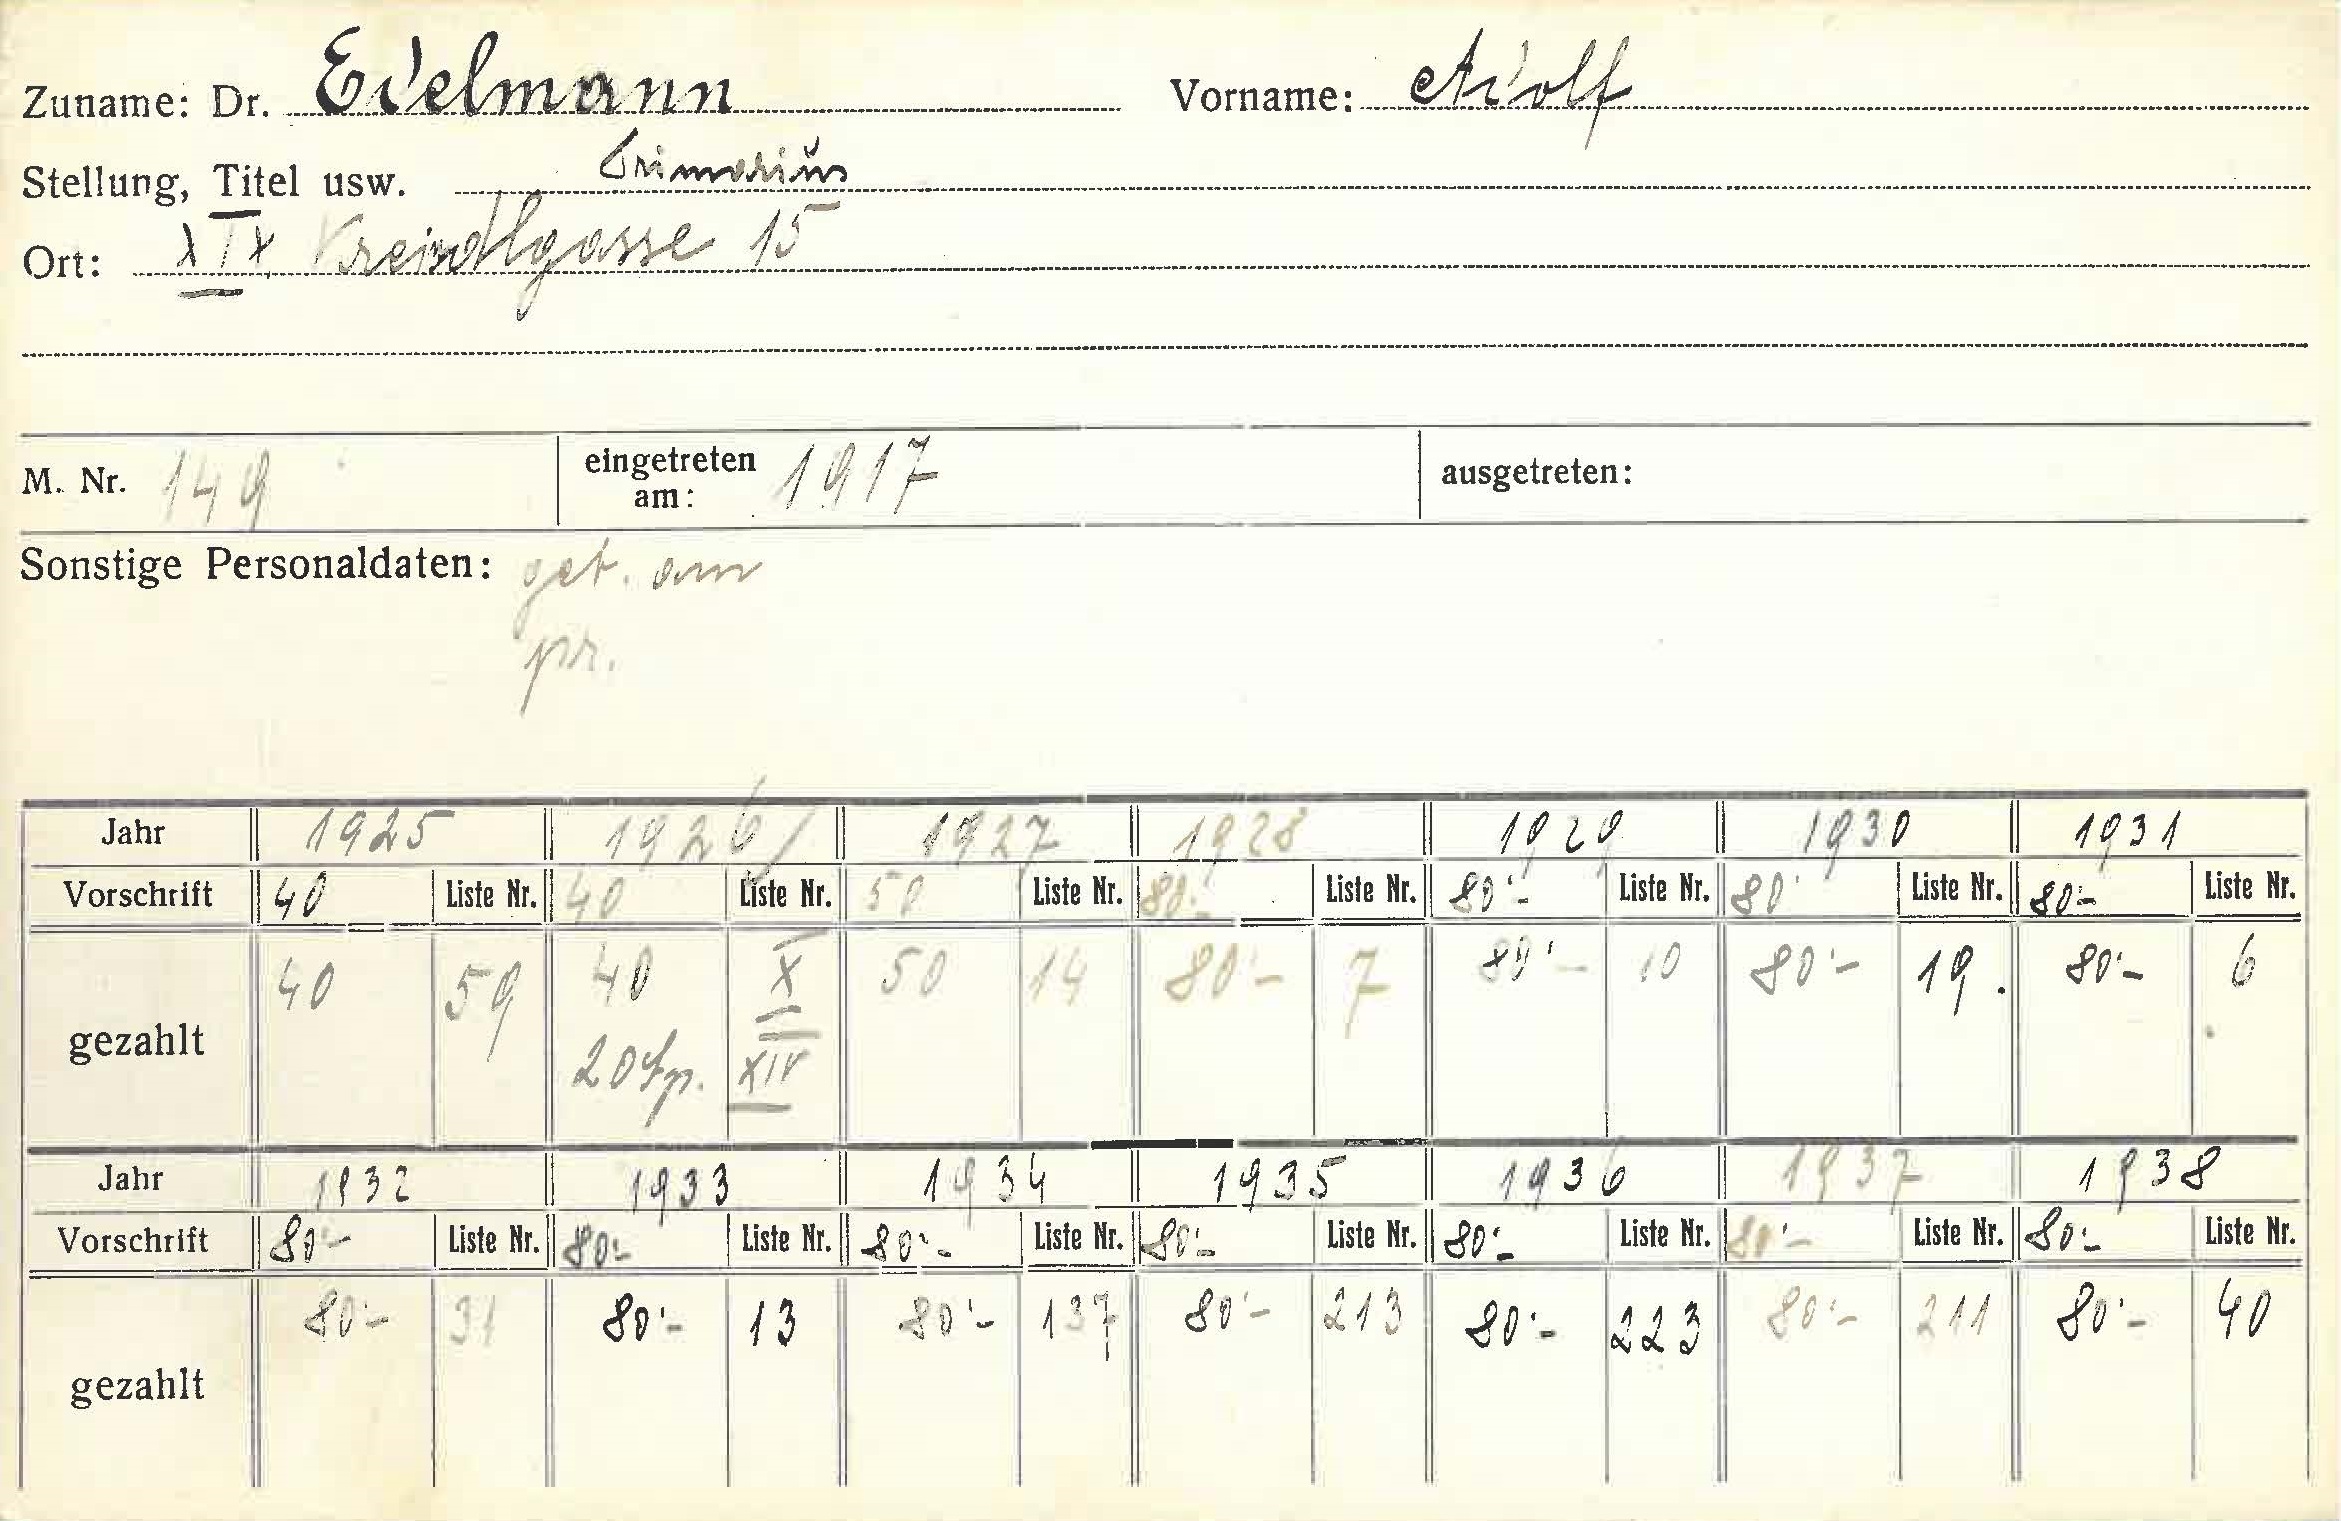 Zuname: Dr. Edelmann Vorname: Adolf
Stellung, Titel usw. Primarius
Ort: XIX Kreindlgasse 15
M. Nr. 149 eingetreten am: 1917 ausgetreten:
Sonstige Personaldaten: geb. am
pr.
Jahr 1925 1926 1927 1928 1929 1930 1931
Vorschrift 40 Liste Nr. 40 Liste Nr. 50 Liste Nr. 80·- Liste Nr. 80·- Liste Nr. 80· Liste Nr. 80·- Liste Nr.
gezahlt 40 59 40 X 50 14 80·- 7 80·- 10 80·- 19. 80·- 6
20 Sp. XIV
Jahr 1932 1933 1934 1935 1936 1937 1938
Vorschrift 80·- Liste Nr. 80·- Liste Nr. 80·- Liste Nr. 80·- Liste Nr. 80·- Liste Nr. 80·- Liste Nr. 80·- Liste Nr.
gezahlt 80·- 31 80·- 13 80·- 137 80·- 213 80·- 223 80·- 211 80·- 40